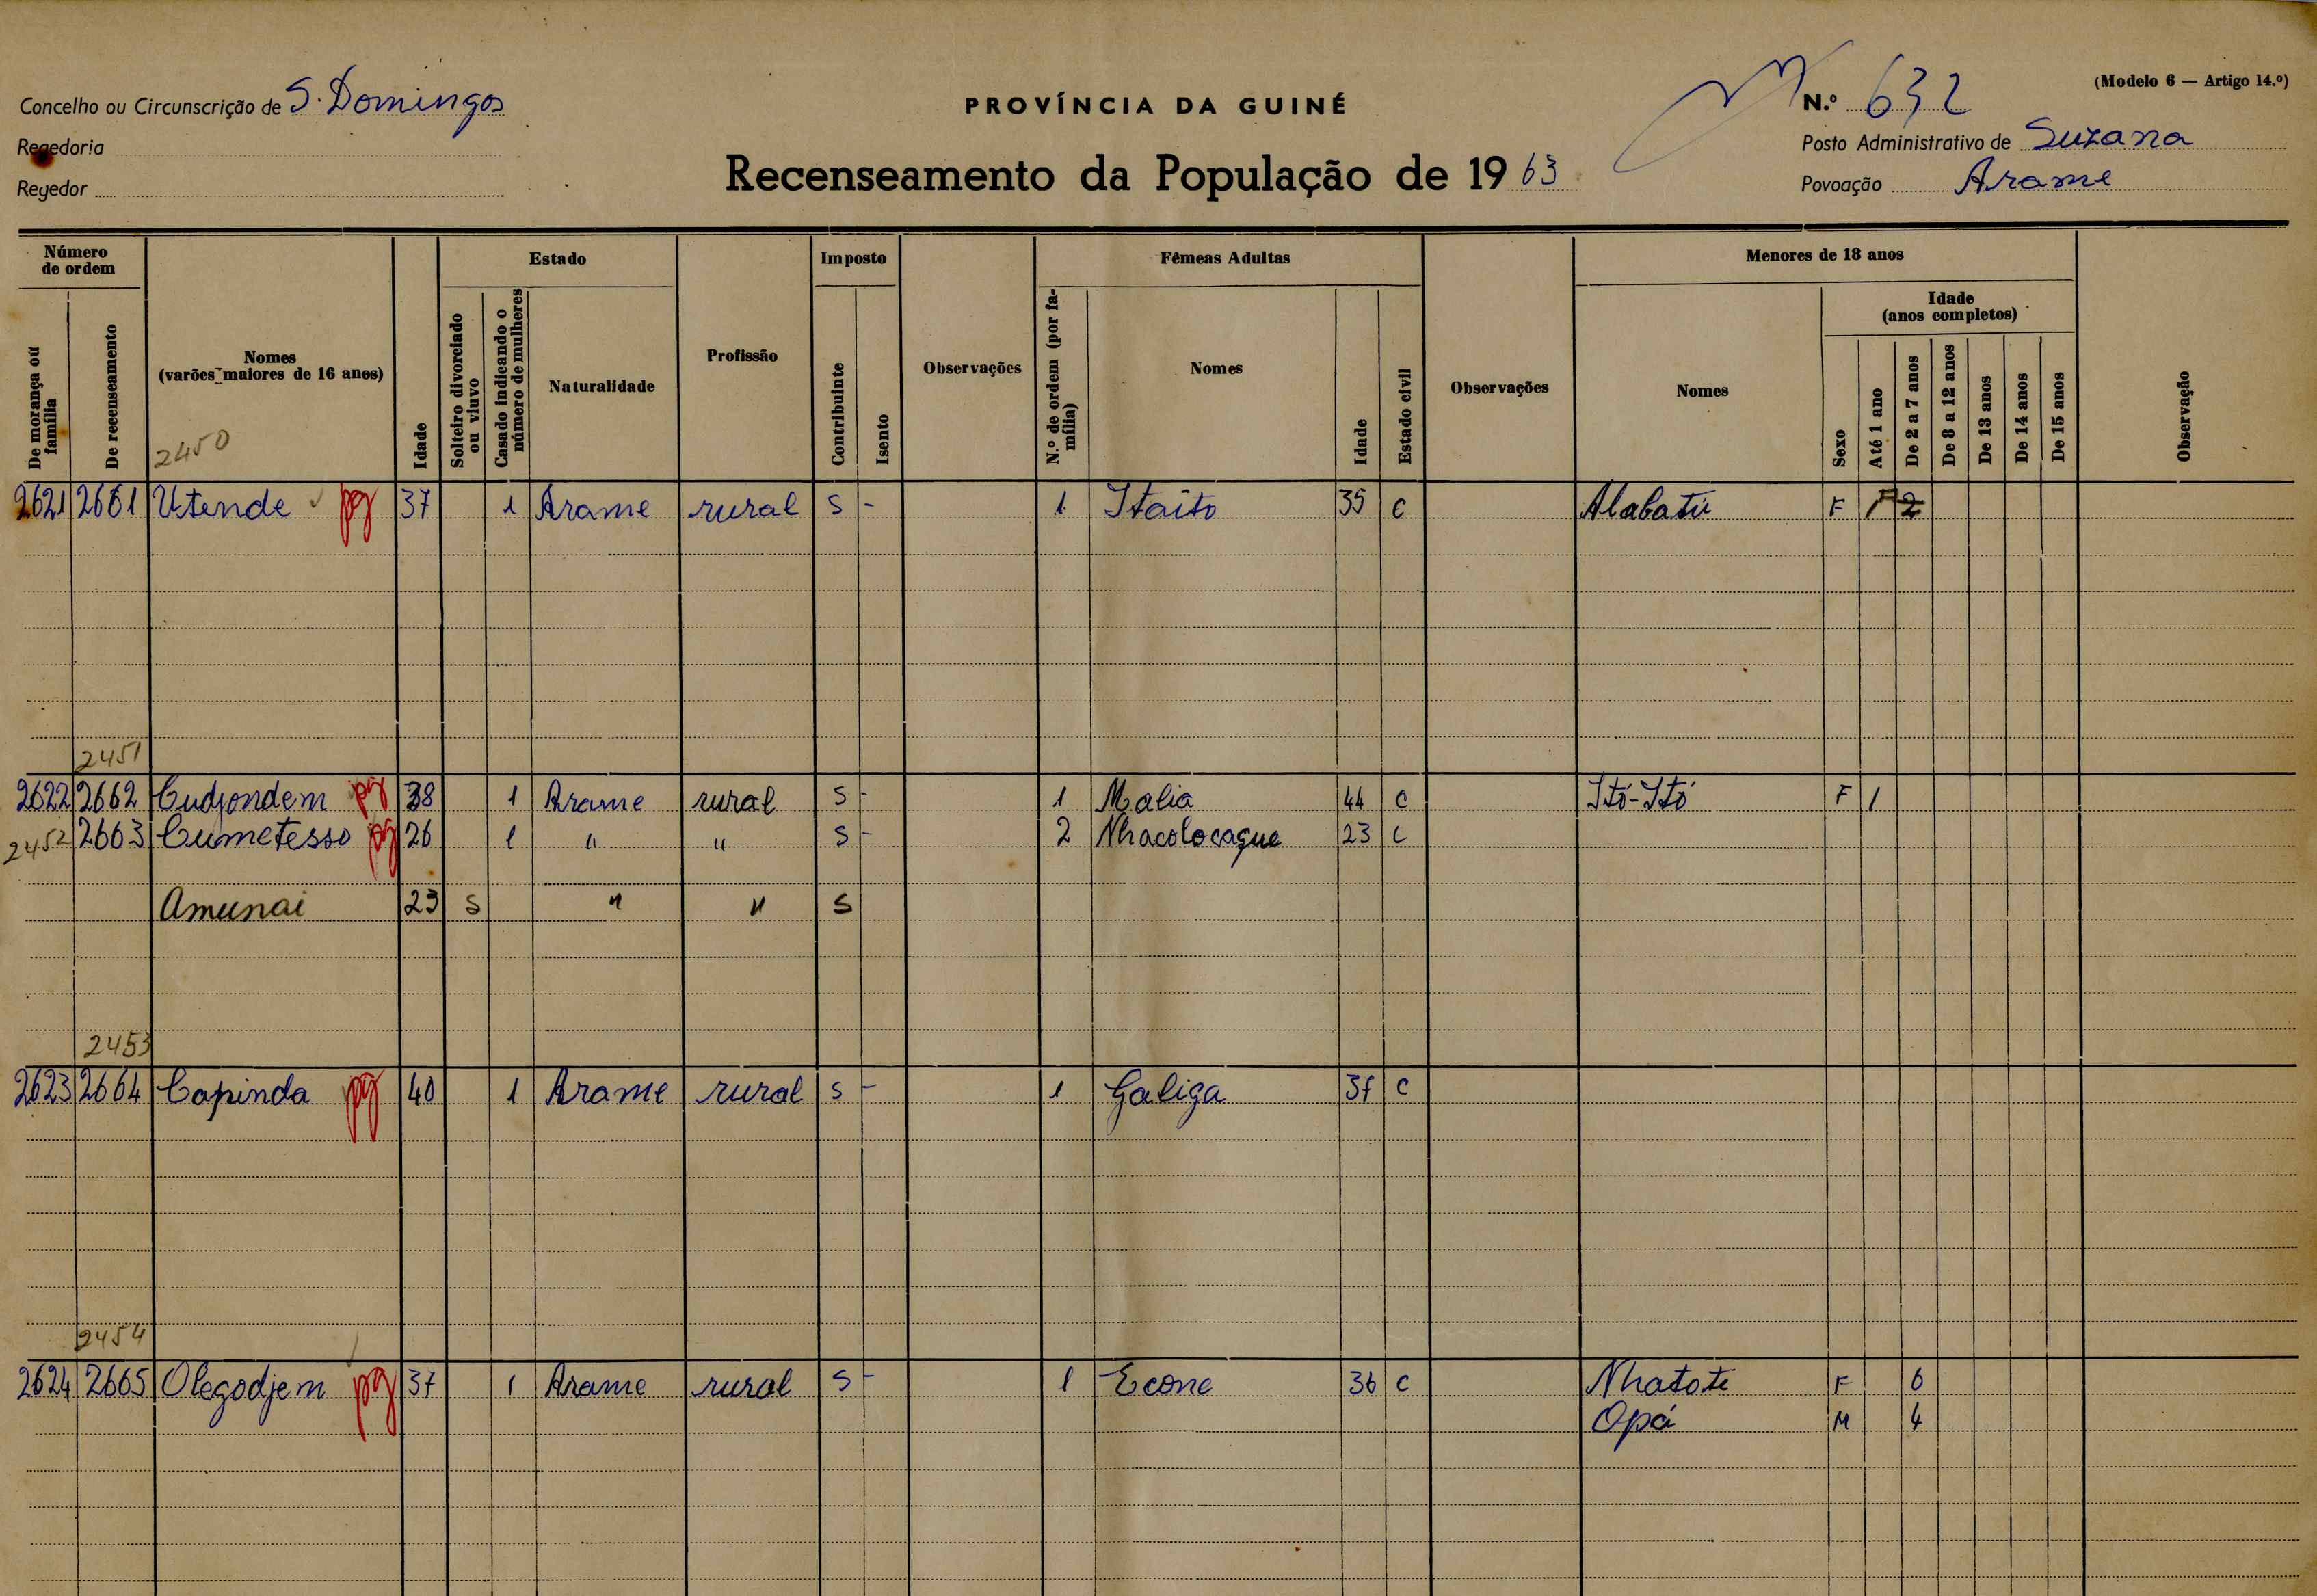 (Modelo 6 — Artigo 14.º)
Concelho ou Circunscrição de S. Domingos
PROVÍNCIA DA GUINÉ
N.º 632
Regedoria
Posto Administrativo de Suzana
Regedor
Recenseamento da População de 1963
Povoação Arame
Número de ordem
De morança ou família
De recenseamento
Nomes (varões maiores de 16 anos)
2450
Idade
Estado
Solteiro divorciado ou viuvo
Casado indicando o número de mulheres
Naturalidade
Profissão
Imposto
Contribuinte
Isento
Observações
Fêmeas Adultas
N.º de ordem (por família)
Nomes
Idade
Estado civil
Observações
Menores de 18 anos
Nomes
Sexo
Idade (anos completos)
Até 1 ano
De 2 a 7 anos
De 8 a 12 anos
De 13 anos
De 14 anos
De 15 anos
Observação
2621 2661 Utende pg 37 1 Arame rural S - 1 Itaito 35 C Alabatú F
2451
2622 2662 Cudjondem pg 38 1 Arame rural S - 1 Malia 44 C Itó-Itó F 1
2452 2663 Cumetesso pg 26 1 " " S - 2 Nhacolocague 23 C
Amunai 23 S " " S
2453
2623 2664 Capinda pg 40 1 Arame rural S - 1 Galiga C
2454
2624 2665 Olegodjem pg 37 1 Arame rural S - 1 Econe 36 C Nhatote F 6
Opá M 4